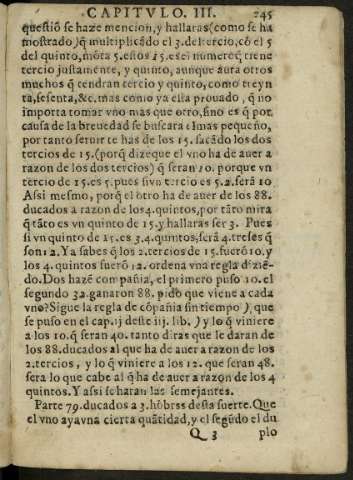 CAPITVLO. III. 245
questiō se haze mencion, y hallaras (como se ha
mostrado) q̄ multiplicādo el 3. del tercio, cō el 5
del quinto, mōta 5. estos 15. es el numero q̄ tiene
tercio justamente, y quinto, aunque aura otros
muchos q̄ tendran tercio y quinto, como treyn
ta, sesenta, &c. mas como ya esta prouado, q̄ no
importa tomar vno mas que otro, sino es q̄ por
causa de la breuedad se buscara el mas pequeño,
por tanto seruir te has de los 15. sacādo los dos
tercios de 15. (porq̄ dize que el vno ha de auer a
razon de los dos tercios) q̄ seran 10. porque vn
tercio de 15. es 5. pues si vn tercio es 5. 2. será 10
Assi mesmo, porq̄ el otro ha de auer de los 88.
ducados a razon de los 4. quintos, por tāto mira
q̄ tāto es vn quinto de 15. y hallaras ser 3. Pues
si vn quinto de 15. es 3. 4. quintos, será 4. treses q̄
son 12. Ya sabes q̄ los 2. tercios de 15. fuerō 10. y
los 4. quintos fuerō 12. ordena vna regla dziē-
do. Dos hazē compañia, el primero puso 10. el
segundo 12. ganaron 88. pido que viene a cada
vno? Sigue la regla de cōpañia sin tiempo), que
se puso en el cap. ij deste iij. lib.) y lo q̄ viniere
a los 10. q̄ seran 40. tanto diras que le daran de
los 88. ducados al que ha de auer a razon de los
2. tercios, y lo q̄ viniere a los 12. que seran 48.
sera lo que cabe al q̄ ha de auer a razon de los 4
quintos. Y assi se haran las semejantes.
Parte 79. ducados a 3. hōbres desta suerte. Que
el vno aya vna cierta quātidad, y el segūdo el du
Q 3 plo